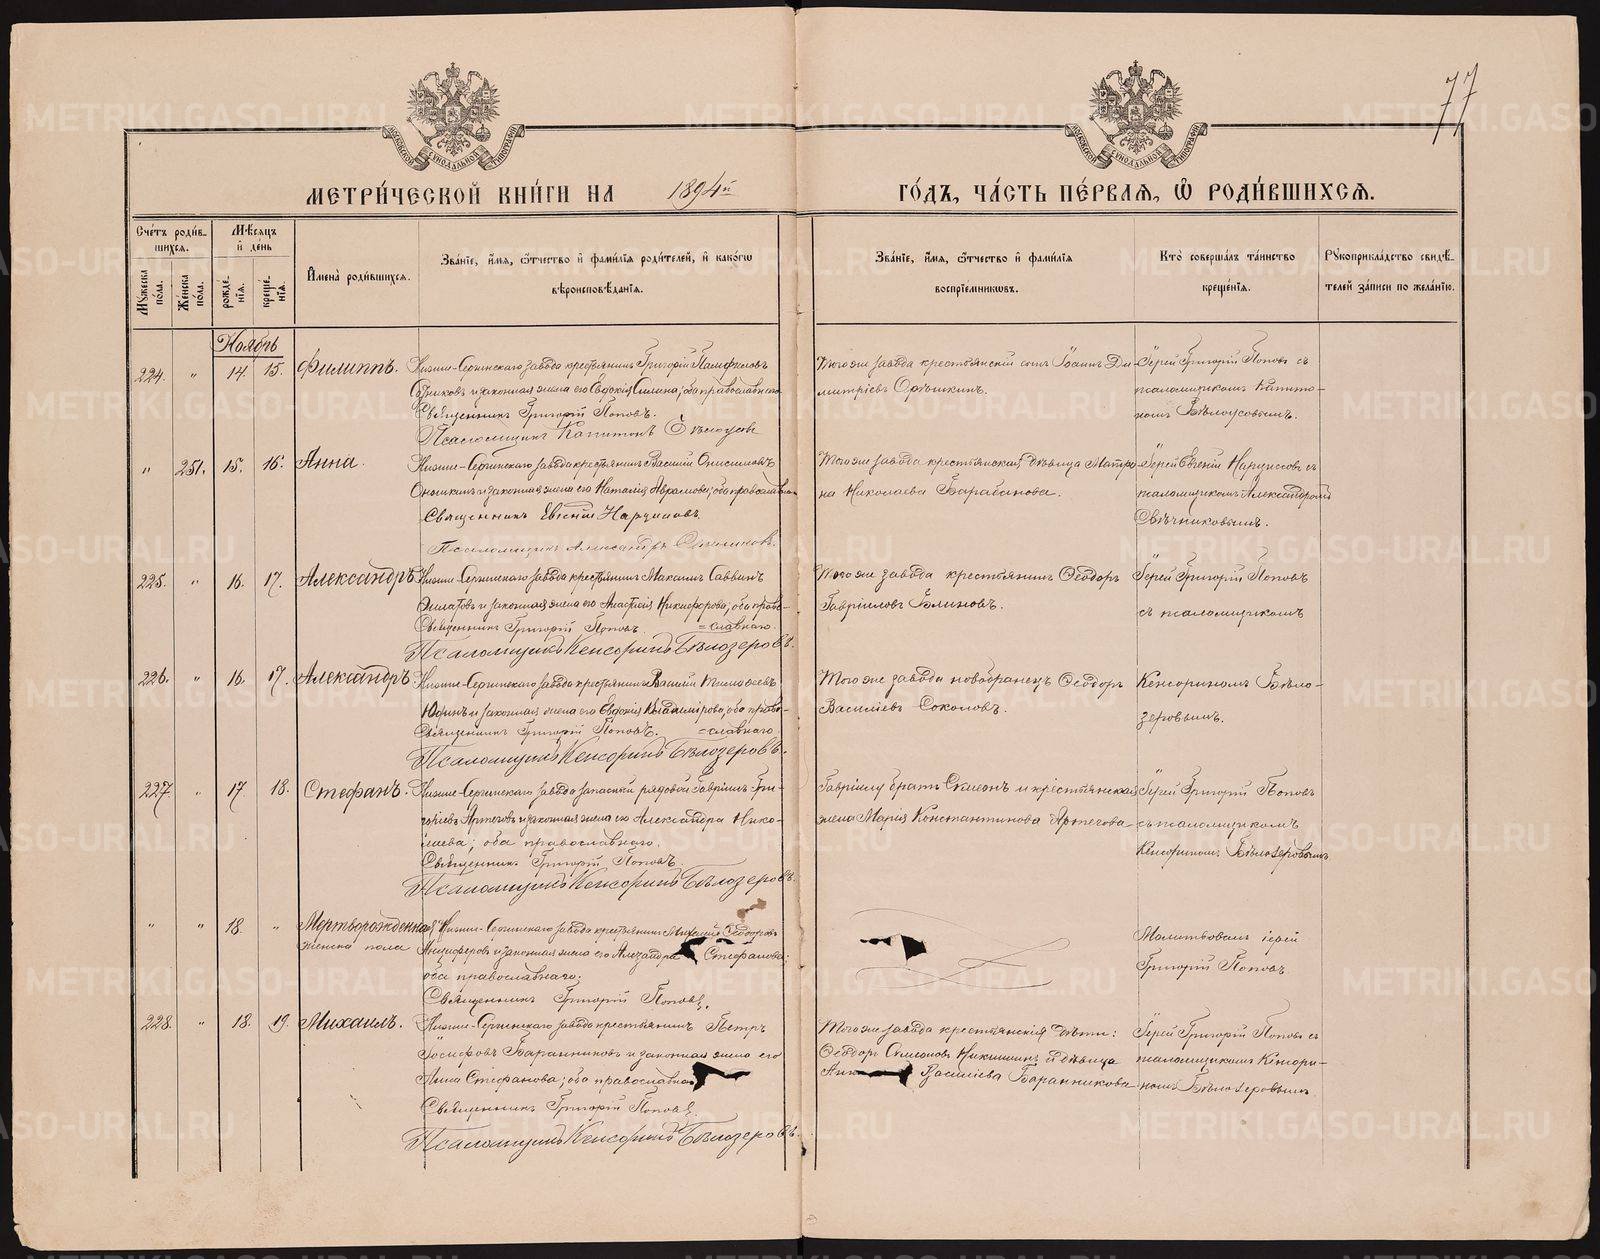 77
МЕТРИ́ЧЕСКОЙ КНИ́ГИ НА 1894й ГО́ДЪ, ЧА́СТЬ ПЕ́РВАЯ, Ѡ РОДИ́ВШИХСЯ.
МОСКОВСКОЙ СѴНОДАЛЬНОЙ ТИПОГРАФІИ
МОСКОВСКОЙ СѴНОДАЛЬНОЙ ТИПОГРАФІИ
Сче́тъ роди́в-
шихся.
Мꙋжеска по́ла.
Же́нска по́ла.
Мѣ́сяцъ
и҆ де́нь
рожде́-
нїя.
креще́-
нїя.
И҆мена̀ роди́вшихся.
Зва́нїе, и҆́мя, ѻ҆́тчество и҆ фами́лїя роди́телей, и҆ како́гѡ
вѣроисповѣ́данїя.
Зва́нїе, и҆́мя, ѻ҆́тчество и҆ фами́лїя
воспрїе́мникѡвъ.
Кто̀ соверша́лъ та́инство
креще́нїя.
Рꙋкоприкла́дство свидѣ́-
телей за́писи по жела́нїю.
Ноябрь
224. " 14. 15. Филиппъ.
Нижне-Сергинскаго завода крестьянинъ Григорій Памфиловъ
и законная жена его Евдокія Силина; оба православнаго
Священникъ Григорій Поповъ.
Псаломщикъ Капитонъ Бѣлоусовъ
Того же завода крестьянскій сынъ Іоаннъ Ди-
митріевъ Орѣшкинъ.
Іерей Григорій Поповъ съ
псаломщикомъ Капито-
номъ Бѣлоусовымъ.
" 251. 15. 16. Анна.
Нижне-Сергинскаго завода крестьянинъ Василій Онисимовъ
и законная жена его Наталія Аврамова; оба православнаго
Священникъ Евгеній Нарциссовъ.
Псаломщикъ Александръ
Того же завода крестьянская дѣвица Матро-
на Николаева Барабанова.
Іерей Евгеній Нарциссовъ съ
псаломщикомъ Александромъ
Свѣчниковымъ.
225. " 16. 17. Александръ
Нижне-Сергинскаго завода крестьянинъ Максимъ Саввинъ
и законная жена его Анастасія Никифорова; оба право-
=славнаго.
Священникъ Григорій Поповъ
Псаломщикъ Кенсоринъ Бѣлозеровъ.
Того же завода крестьянинъ Ѳеодоръ
Гавріиловъ Блиновъ.
Іерей Григорій Поповъ
съ псаломщикомъ
226. " 16. 17. Александръ
Нижне-Сергинскаго завода крестьянинъ Василій Тимоѳеевъ
Юдинъ и законная жена его Евдокія Владимірова; оба право-
=славнаго
Священникъ Григорій Поповъ.
Псаломщикъ Кенсоринъ Бѣлозеровъ.
Того же завода новобранецъ Ѳеодоръ
Василіевъ Соколовъ.
Кенсориномъ Бѣло-
зеровымъ.
227. " 17 18. Стефанъ.
Нижне-Сергинскаго завода запасный рядовой Гавріилъ Гри-
горіевъ Артеговъ и законная жена его Александра Нико-
лаева; оба православнаго.
Священникъ Григорій Поповъ.
Псаломщикъ Кенсоринъ Бѣлозеровъ.
Гавріилу братъ Симеонъ и крестьянская
жена Марія Константинова Артегова
Іерей Григорій Поповъ
съ псаломщикомъ
Кенсориномъ Бѣлозеровымъ
" " 18. " Мертворожденная
женска пола
Нижне-Сергинскаго завода крестьянинъ Михаилъ Ѳеодоровъ
Анциферовъ и законная жена его Александра Стефанова;
оба православнаго.
Священникъ Григорій Поповъ.
Молитвовалъ іерей
Григорій Поповъ
228. " 18. 19. Михаилъ.
Нижне-Сергинскаго завода крестьянинъ Петръ
Іосифовъ Баранниковъ и законная жена его
Анна Стефанова; оба православнаго
Священникъ Григорій Поповъ.
Псаломщикъ Кенсоринъ Бѣлозеровъ
Того же завода крестьянскія дѣти:
Ѳеодоръ Симеоновъ Никишинъ и дѣвица
Василіева Баранникова
Іерей Григорій Поповъ съ
псаломщикомъ Кенсори-
номъ Бѣлозеровымъ
METRIKI.GASO-URAL.RU